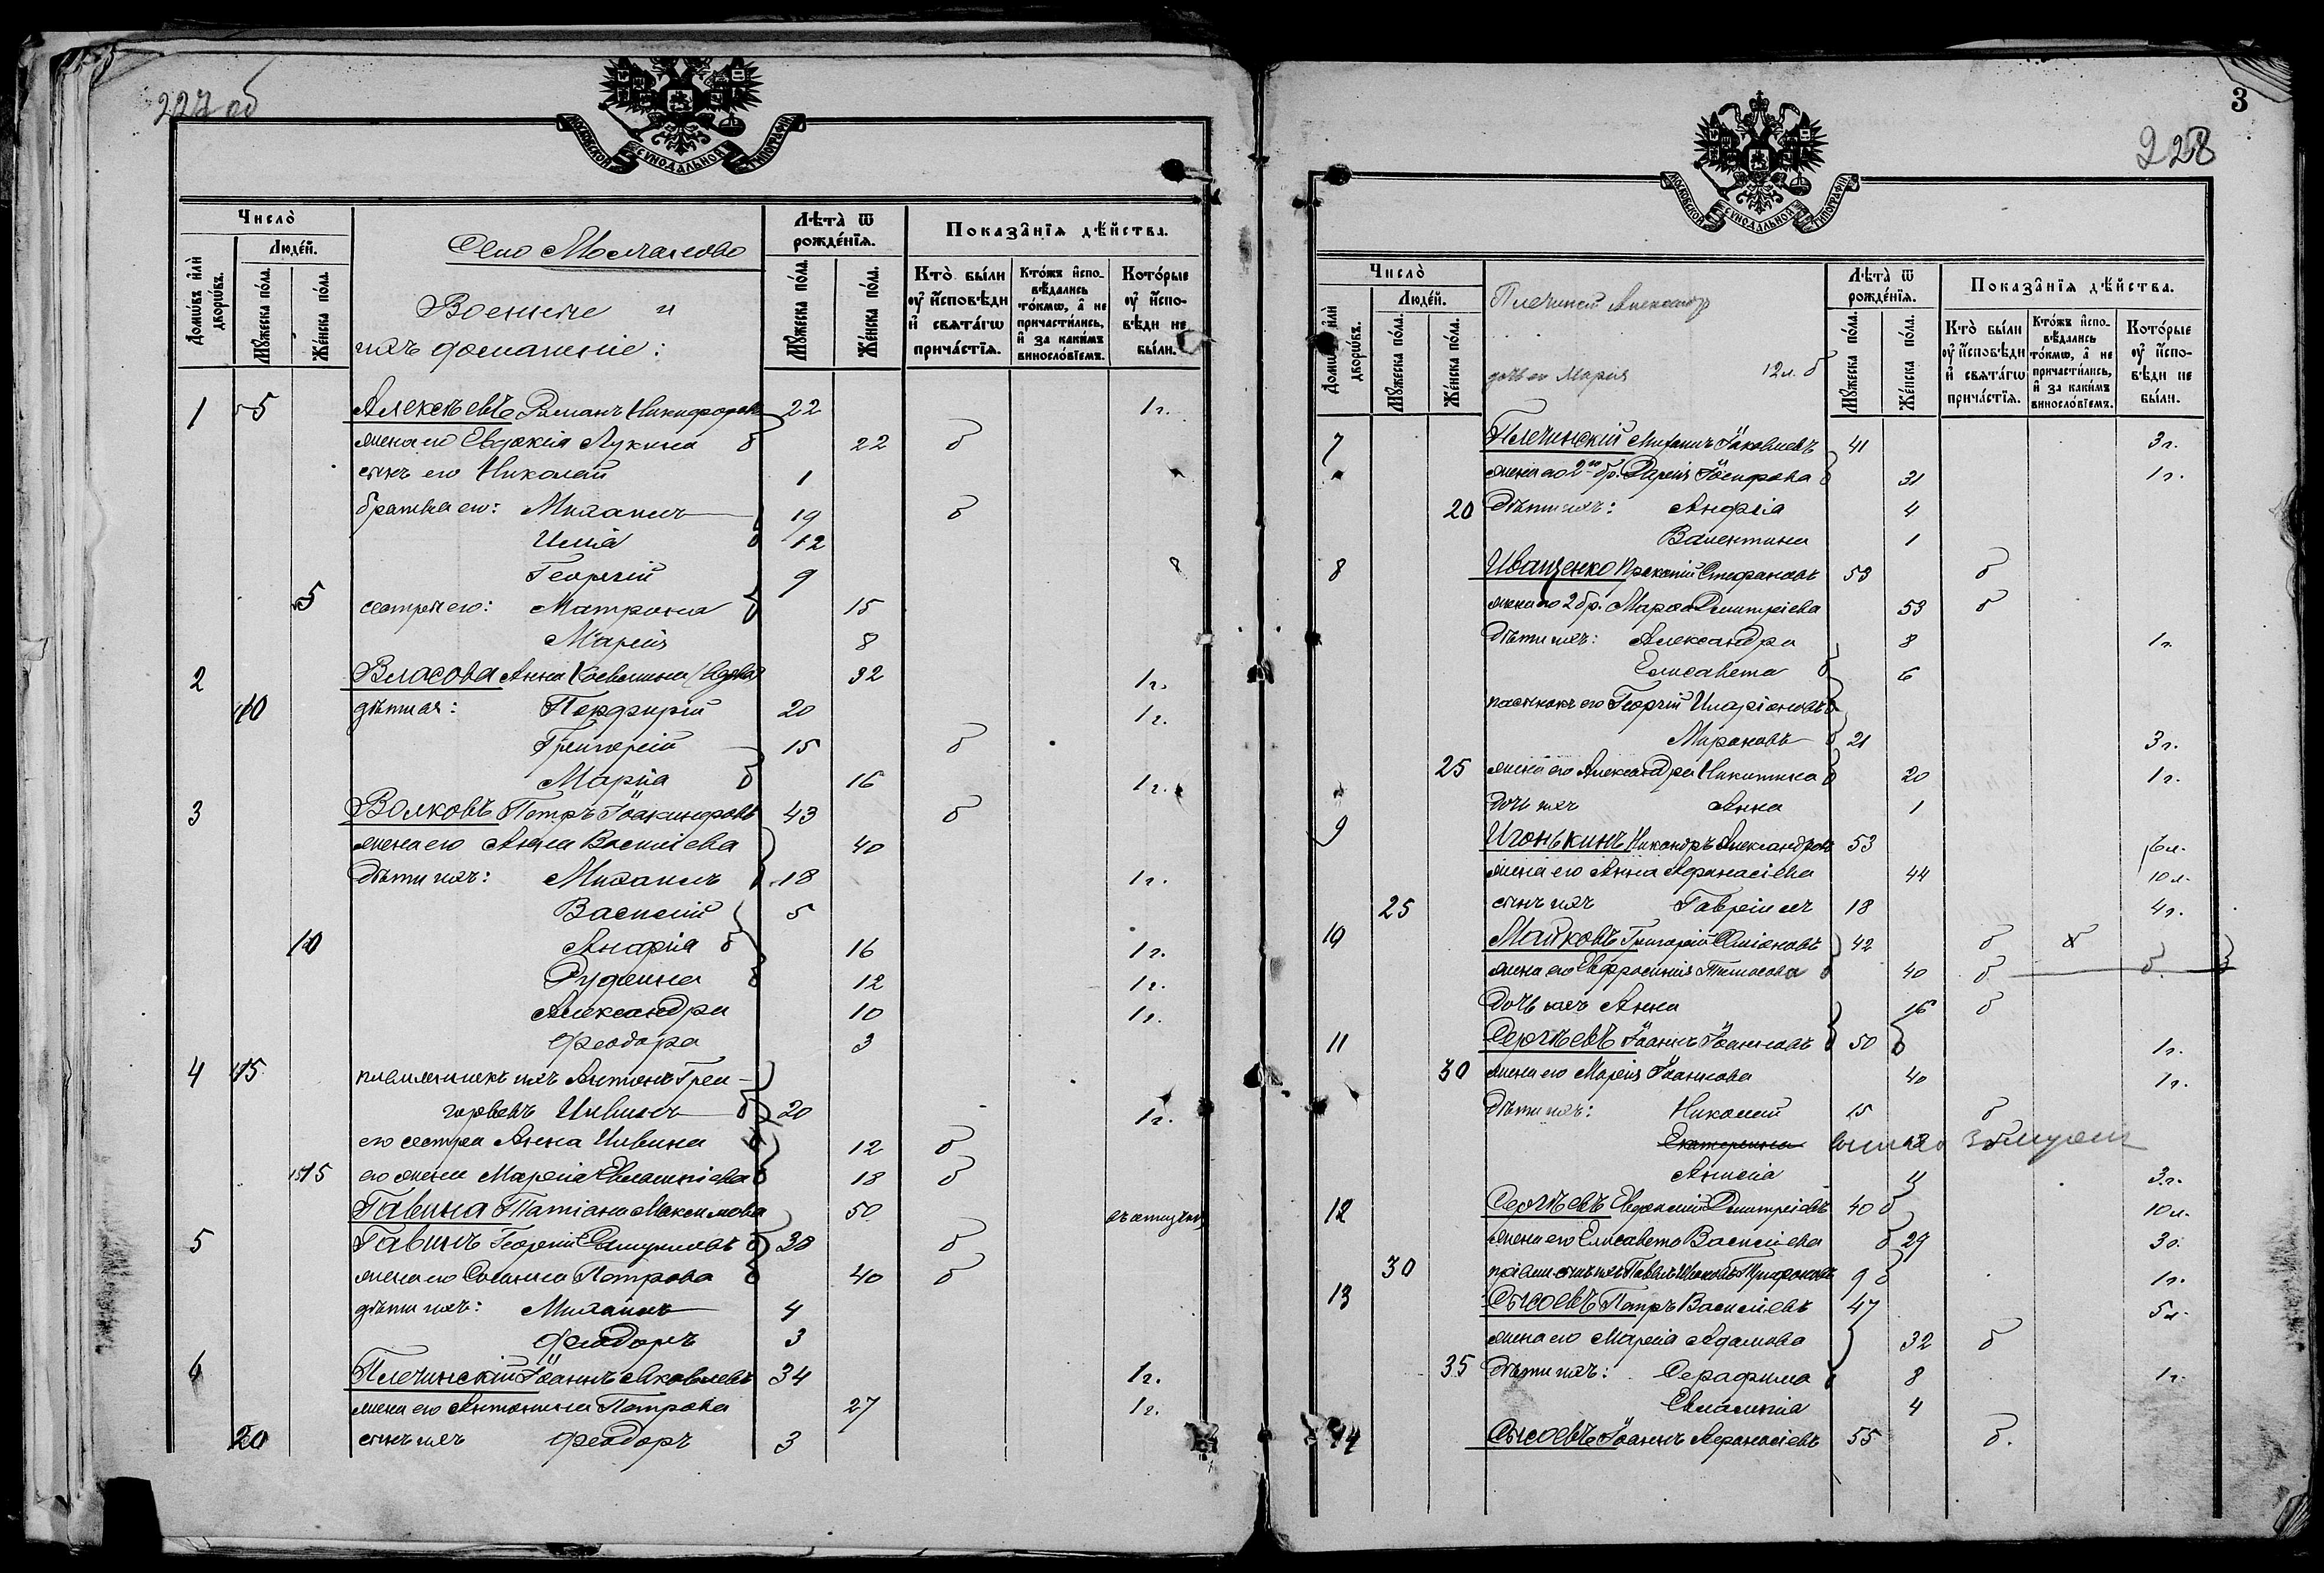 227 об
МОСКОВСКОЙ СѴНОДАЛЬНОЙ ТИПОГРАФІИ
Число̀
Людей.
Домѡвъ и҆лѝ дворѡвъ.
Мꙋжеска по́ла.
Же́нска по́ла.
Село Молчаново
Военные и
ихъ домашніе:
Лѣта̀ ѿ рождє́нїѧ.
Мꙋжеска по́ла.
Же́нска по́ла.
Показа̂нїѧ дѣ́йства.
Кто̀ бы́ли ᲂу҆ и҆сповѣди и҆ свѧта́гѡ прича́стїѧ.
Кто́жъ и҆сповѣдались то́кмѡ, а҆ не причасти́лись, и҆ за каки́мъ винослоо́вїемъ.
Кото́рые ᲂу҆ и҆сповѣди не бы́ли.
1 5 Алексѣевъ Романъ Никифоровъ 22 1 г.
жена его Евдокія Лукина б 22 б
сынъ его Николай 1
братья его: Михаилъ 19 б
Илія б 12
Георгій 9
5 сестры его: Матрона 15
Марія 8
2 Власова Анна (вдова) 32 1 г.
10 дѣти ея: Порфирій 20 1 г.
Григорій 15 б
Марія б 16 1 г.
3 Волковъ Петръ 43 б
жена его Анна Василіева 40
Дѣти ихъ: Михаилъ 18 1 г.
Василій 5
10 Анфія б 16 1 г.
12 1 г.
Александра 10 1 г.
Феодора 3
4 15 племянникъ ихъ Антонъ Гри-
горьевъ б 20 1 г.
его сестра Анна 12 б
15 его жена Марія б 18 б
Гавина Татіана Максимова 50
5 Гавинъ Георгій Самуиловъ б 38 б
жена его Петрова б 40 б
дѣти ихъ: Михаилъ 4
Феодоръ 3
6 Плечинскій Іоаннъ Яковлевъ 34 1 г.
жена его Антонина Петрова 27 1 г.
20 сынъ ихъ Феодоръ 3
3
228
МОСКОВСКОЙ СѴНОДАЛЬНОЙ ТИПОГРАФІИ
Число̀
Людей.
Домѡвъ и҆лѝ дворѡвъ.
Мꙋжеска по́ла.
Же́нска по́ла.
Александръ
дочь его Марія 12 л. б
Лѣта̀ ѿ рождє́нїѧ.
Мꙋжеска по́ла.
Же́нска по́ла.
Показа̂нїѧ дѣ́йства.
Кто̀ бы́ли ᲂу҆ и҆сповѣди и҆ свѧта́гѡ прича́стїѧ.
Кто́жъ и҆сповѣдались то́кмѡ, а҆ не причасти́лись, и҆ за каки́мъ винослоо́вїемъ.
Кото́рые ᲂу҆ и҆сповѣди не бы́ли.
7 Плечинскій Михаилъ Іаковлевъ 41 3 г.
жена его 2го бр. Дарія Іосифова б 31 1 г.
20 Дѣти ихъ: Анфія 4
Валентина 1
8 Иващенко Прокопій Стефановъ 53 б
жена его 2 бр. Марѳа Димитріева 53 б
Дѣти ихъ: Александра 8 1 г.
Елисавета б 6
пасынокъ его Георгій Иларіоновъ
Мироновъ б 21 3 г.
25 жена его Александра Никитина б 20 1 г.
дочь ихъ Анна 1
9 Игонькинъ Никандръ Александровъ 53 6 л.
жена его Анна Аѳанасіева 44 10 л.
25 сынъ ихъ Гавріилъ 18 4 г.
10 Майковъ Григорій Симоновъ 42 б б
жена его Евфросинія б 40 б б.
Дочь ихъ Анна 16 б
11 Сергѣевъ Іоаннъ Іоанновъ 50 б 1 г.
30 жена его Марія Іоаннова 40 1 г.
Дѣти ихъ: Николай 15 б
Екатерина вышла замужъ
Анисія 11 3 г.
12 Сергѣевъ Евдокимъ Димитріевъ 40 б 10 л.
жена его Елисавета Василіева б 29 3 г.
30 9 б 1 г.
13 Сысоевъ Петръ Василіевъ 47 5 л.
жена его Марія Адамова 32 б
35 Дѣти ихъ: Серафима 8 1 г.
Евлампія 4
14 Сысоевъ Іоаннъ Аѳанасіевъ 55 б.